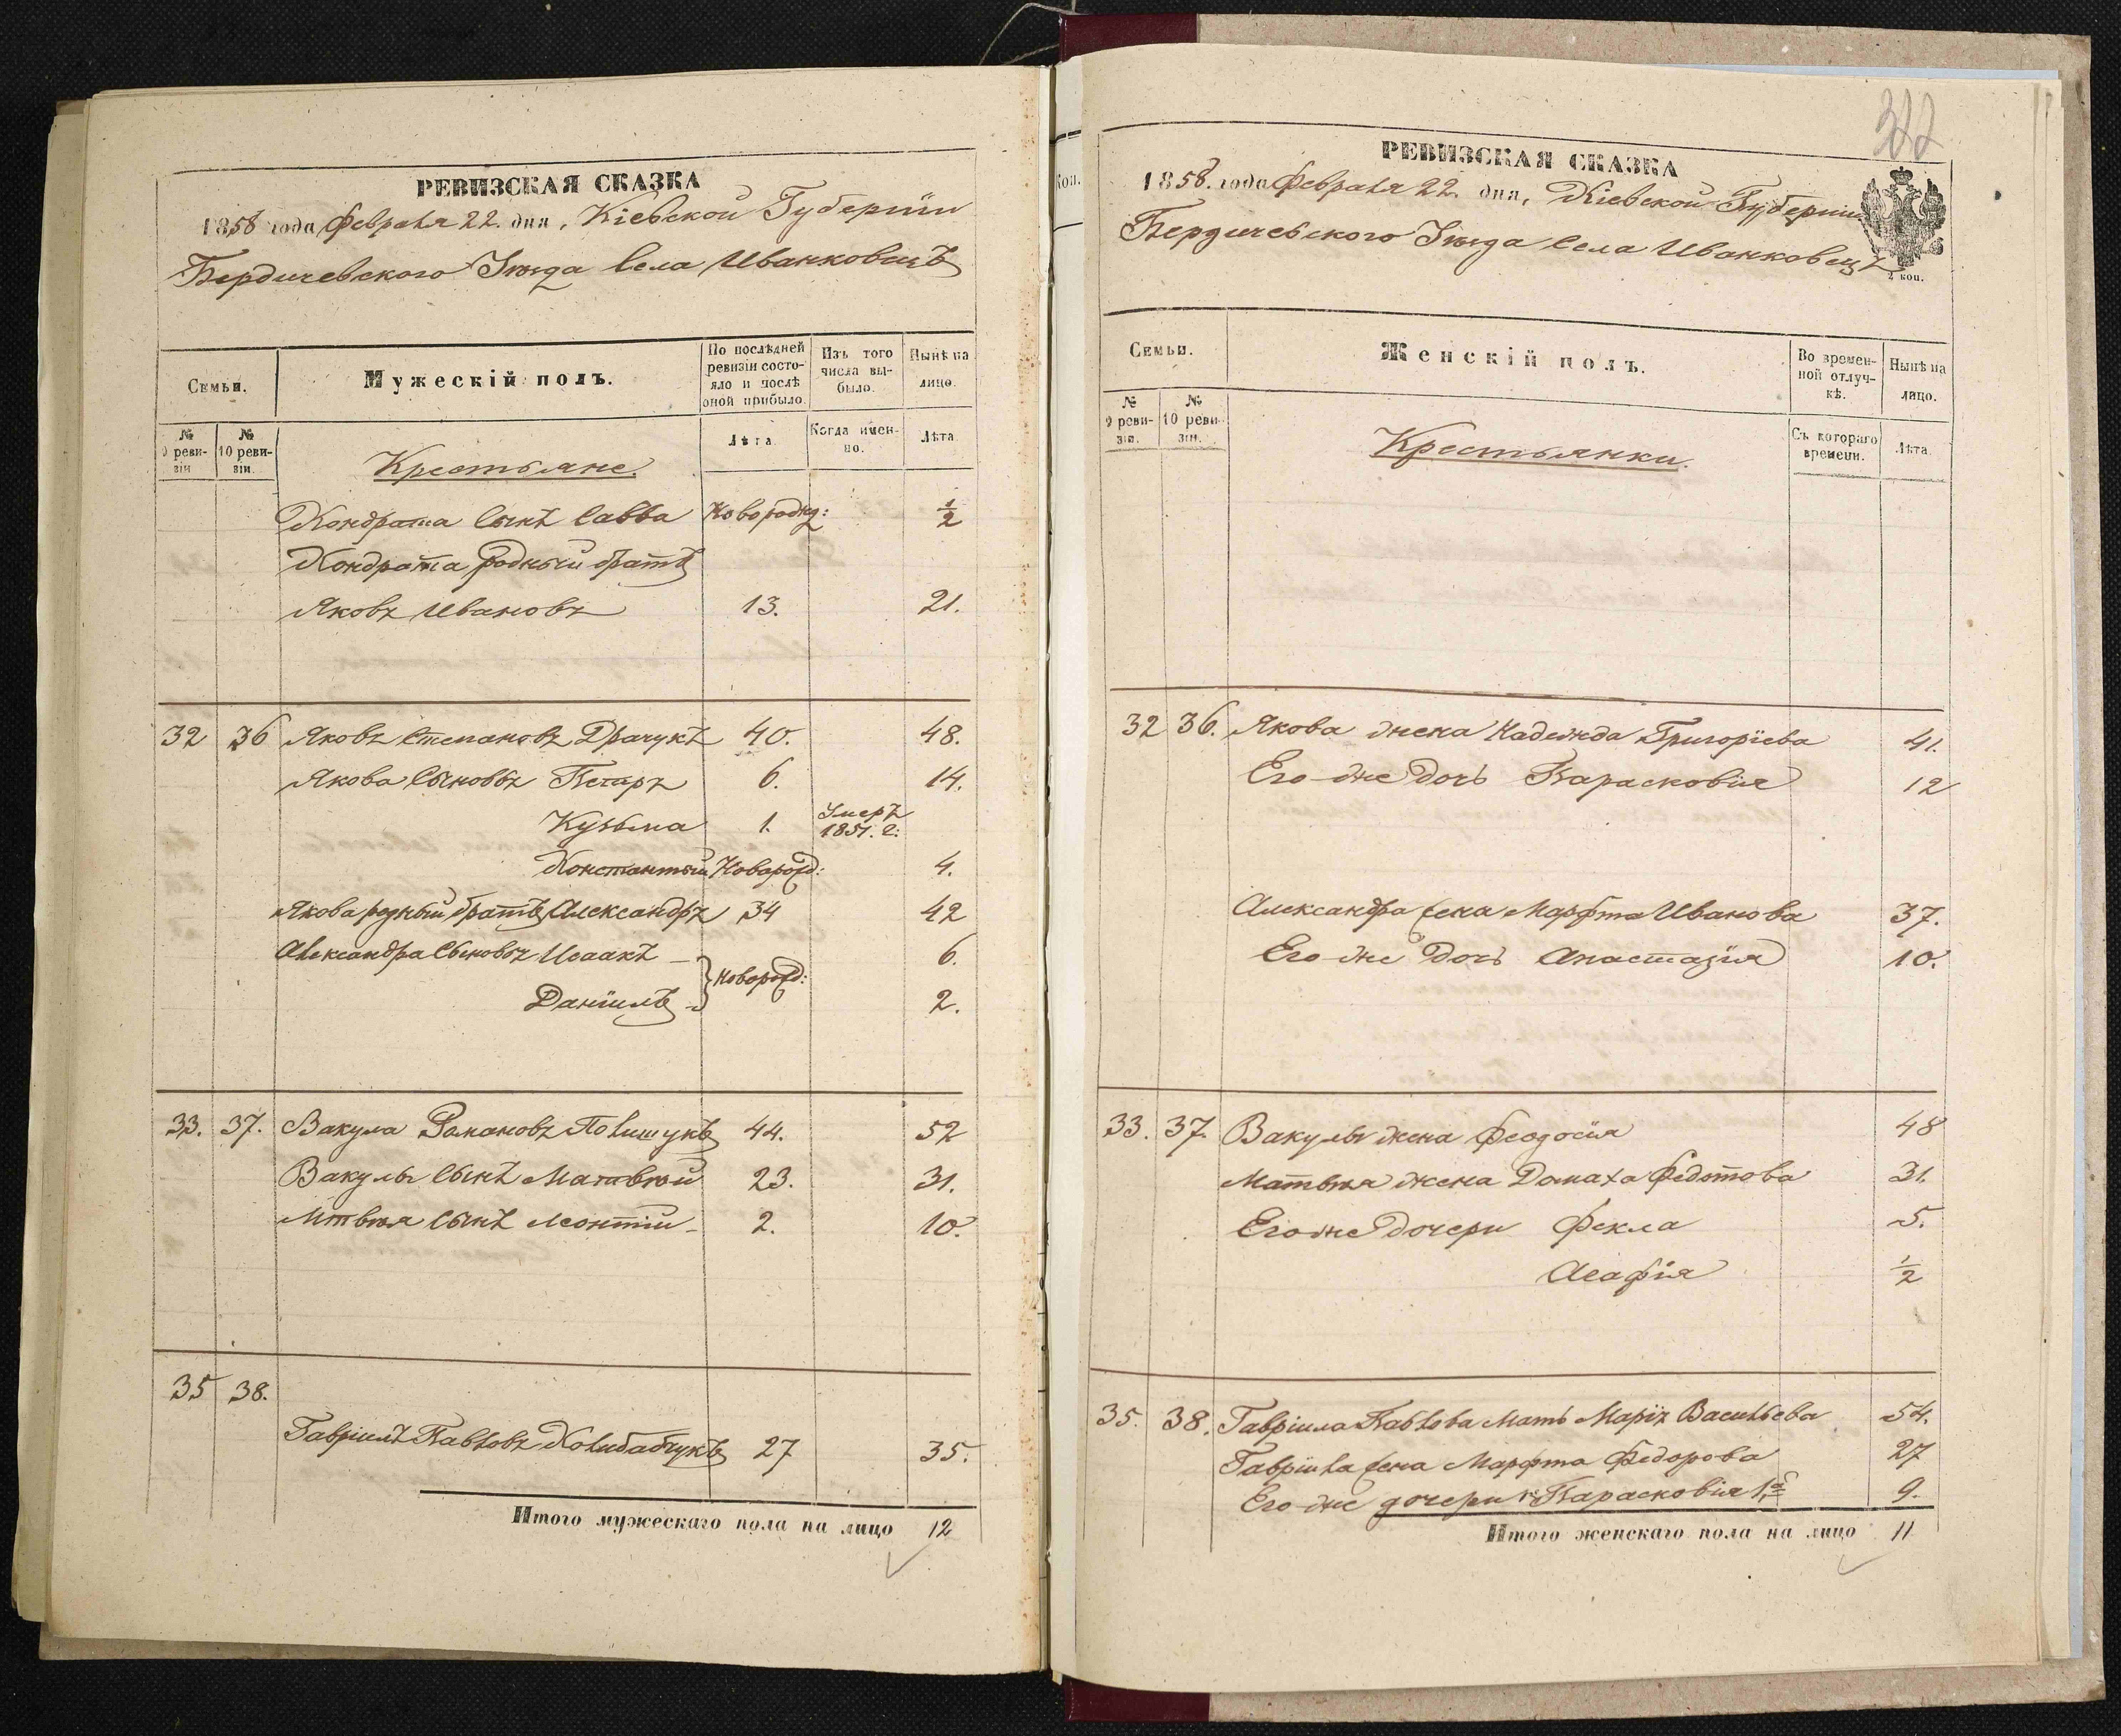 РЕВИЗСКАЯ СКАЗКА
1858 года Февраля 22. дня, Кіевской Губерніи
Бердичевского Уѣзда Села Иванковецъ
Семьи.
Мужескій полъ.
По послѣдней ревизіи состояло и послѣ оной прибыло.
Изъ того числа выбыло.
Нынѣ на лицо.
№ 9 ревизіи
№ 10 ревизіи.
Крестьяне.
Лѣта
Когда именно.
Лѣта
Кондрата Сынъ Савва Новорожд: ½
Кондрата родный братъ
Яковъ Ивановъ 13. 21.
32 36 Яковъ Степановъ Драчукъ 40. 48.
Якова Сыновья Петръ 6. 14.
Кузьма 1. Умеръ 1851. г:
Константый Новорожд: 4.
Якова родный братъ Александръ 34 42
Александра Сыновья Исаакъ 6.
Новорожд:
Даніилъ 2.
33. 37. Вакула Романовъ Полищукъ 44. 52
Вакулы Сынъ Матвѣй 23. 31.
Мтвѣя Сынъ Леонтій 2. 10.
35 38.
Гавріилъ Павловъ Колибабчукъ 27 35.
Итого мужескаго пола на лицо 12
322
коп.
РЕВИЗСКАЯ СКАЗКА
1858. года Февраля 22. дня, Кіевской Губерніи
Бердичевского Уѣзда Села Иванковецъ
2 коп.
Семьи.
Женскій полъ.
Во временной отлучкѣ.
Нынѣ на лицо.
№ 9 ревизіи.
№ 10 ревизіи.
Крестьянки.
Съ котораго времени.
Лѣта
32 36. Якова жена Надежда Григоріева 41.
Его-же дочь Парасковія 12
Александра жена Марфта Иванова 37.
Его-же дочь Анастазія 10.
33. 37. Вакулы жена Феодосія 48
Матвѣя жена Домаха Федотова 31.
Его же дочери Фекла 5.
Агафія ½
35. 38. Гавріила Павлова Мать Марія Васильева 54.
Гавріила жена Марфта Федорова 27
Его-же дочери Парасковія 1я 9.
Итого женскаго пола на лицо 11